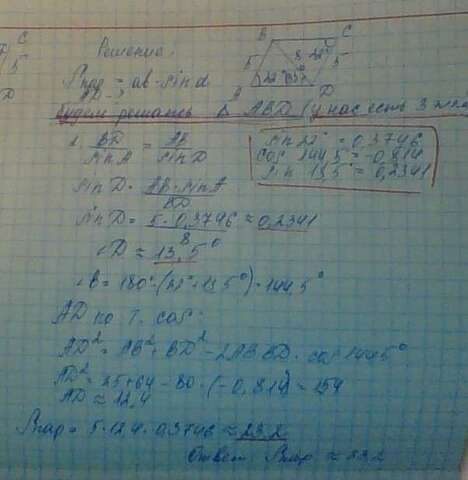 Решение.
Sпар = ab · sin α
AD - ?
будем решать Δ ABD (у нас есть 3
B C
5 8 22°
22° 13,5° 5
A D
1. BD / sin A = AB / sin D
sin 22° = 0,3746
cos 144,5° = -0,814
sin 13,5° = 0,2341
sin D = AB · sin A / BD
sin D = 5 · 0,3746 / 8 ≈ 0,2341
∠D ≈ 13,5°
∠B = 180° - (22° + 13,5°) = 144,5°
AD по т. cos:
AD² = AB² + BD² - 2AB·BD · cos 144,5°
AD² = 25 + 64 - 80 · (-0,814) = 154
AD ≈ 12,4
Sпар = 5 · 12,4 · 0,3746 ≈ 23,2
Ответ: Sпар ≈ 23,2
C
5
D